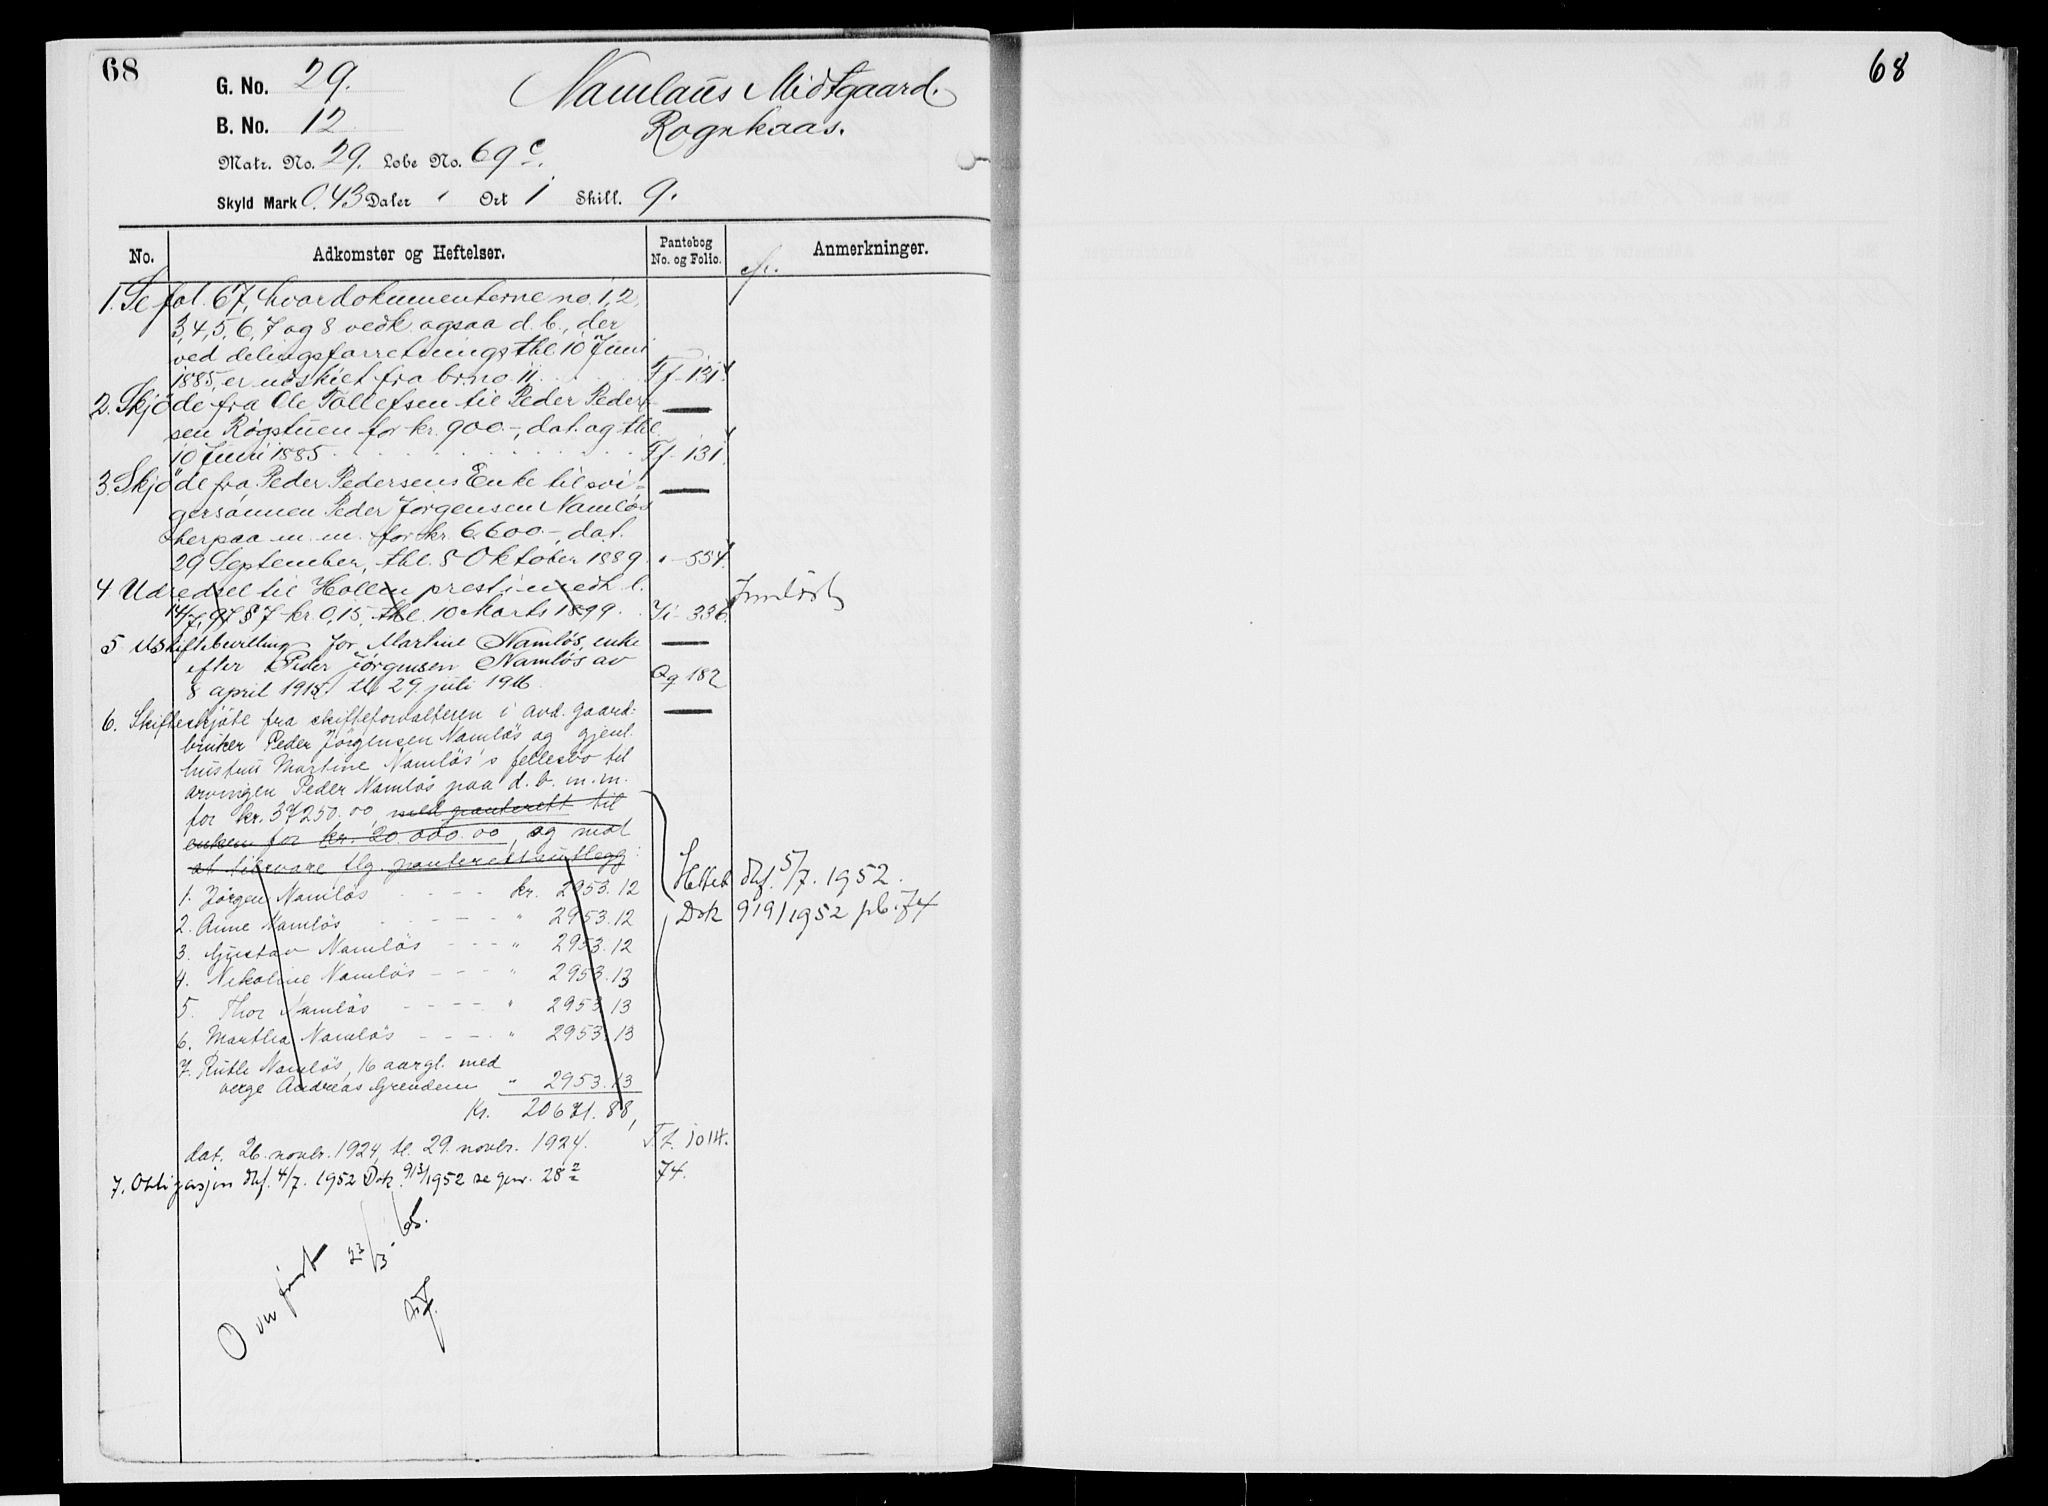 68
G. No. 29.
Namlaus Midtgaard.
B. No. 12
Rognkaas.
Matr. No. 29. Løbe No. 69 c.
Skyld Mark 0.43 Daler , Ort 1 Skill. 9.
No. Adkomster og Heftelser. Pantebog No. og Folio. Anmerkninger.
1. Se fol. 67, hvor dokumenterne no. 1, 2,
3, 4, 5, 6, 7 og 8 vedk. ogsaa d. b., der
ved delingsforretning, thl. 10 Juni
1885, er udskiet fra br. no 11. Ff - 131.
2. Skjöde fra Ole Tollefsen til Peder Peder-
sen Røgstuen for kr. 900.-, dat. og thl.
10 Juni 1885 Ff - 131.
3. Skjöde fra Peder Pedersens Enke til svi-
gersønnen Peder Jörgensen Namlös
herpaa m. m. for kr. 6,600.-, dat.
29 September, thl. 8 Oktober 1889. " - 554.
4 Udredsel til Hollen prestinedh. l.
14/7, 97 § 7 kr. 0,15, thl. 10 Marts 1899. Ji - 336. Innløst
5 Uskiftebevilling for Martine Namlös, enke
efter Peder Jörgensen Namlös av
8 april 1915. tl. 29. juli 1916. Qq 182
6. Skifteskjöte fra skifteforvalteren i avd. gaard-
bruker Peder Jörgensen Namlös og gjenl.
hustru Martine Namlös's fellesbo til
arvingen Peder Namlös paa d. b. m. m.
for kr. 37250.00, med panterett til
enken for kr. 20.000.00, og mot
at tilsvare flg. panterettsutlegg:
1. Jörgen Namlös - - - - kr. 2953.12
Slettet dkf. 5/7. 1952.
2. Anne Namlös - - - - " 2953.12
Dok 919/1952 pb. 74
3. Gustav Namlös - - - " 2953.12
4. Nikoline Namlös - - - " 2953.13
5. Thor Namlös - - - - " 2953.13
6. Martha Namlös - - - - " 2953.13
7. Ruth Namlös, 16 aargl. med
verge Andreas Grendem " 2953.13
Kr. 20671.88,
dat. 26. novbr. 1924, tl. 29. novbr. 1924. 1014.
7. Obligasjon dkf. 4/7. 1952 Dok. 913/1952 se gnr. 28 2 74.
Overført 23/3-65.
68